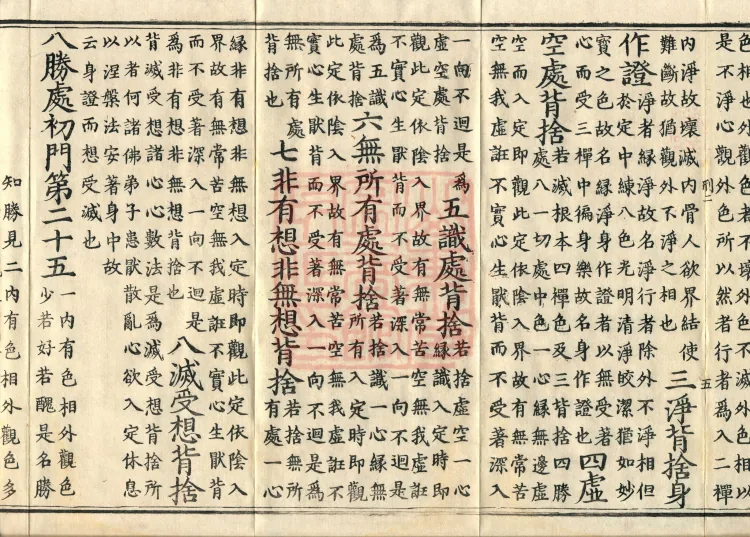 色相也外觀色者不壞外色不滅外色相以
是不淨心觀外色所以然者行者爲入二禪
刑二 五
內淨故壞滅內骨人欲界結使
難斷故猶觀外不淨之相也
三淨背捨身
作證
淨者緣淨故名淨行者除外不淨相但
於定中練八色光明清淨皎潔猶如妙
寶之色故名緣淨徧身作證者以無受著
心而受三禪中徧身樂故名身作證也
四虛
空處背捨
若滅根本四禪色及三背捨四勝
處八一切處中色一心緣無邊虛
空而入定即觀此定依陰入界故有無常苦
空無我虛誑不實心生厭背而不受著深入
一向不迴是爲
虛空處背捨
五識處背捨
若捨虛空一心
緣識入定時即
觀此定依陰入界故有無常苦空無我虛誑
不實心生厭背而不受著深入一向不迴是
爲五識
處背捨
六無所有處背捨
若捨識一心緣無
所有入定時即觀
此定依陰入界故有無常苦空無我虛誑不
實心生厭背而不受著深入一向不迴是爲
無所有處
背捨也
七非有想非無想背捨
若捨無所
有處一心
緣非有想非無想入定時即觀此定依陰入
界故有無常苦空無我虛誑不實心生厭背
而不受著深入一向不迴是
爲非有想非無想背捨也
八滅受想背捨
背滅受想諸心心數法是爲滅受想背捨所
以者何諸佛弟子患厭散亂心欲入定休息
以涅槃法安著身中故
云身證而想受滅也
八勝處初門第二十五
一內有色相外觀色
少若好若醜是名勝
知勝見二內有色相外觀色多